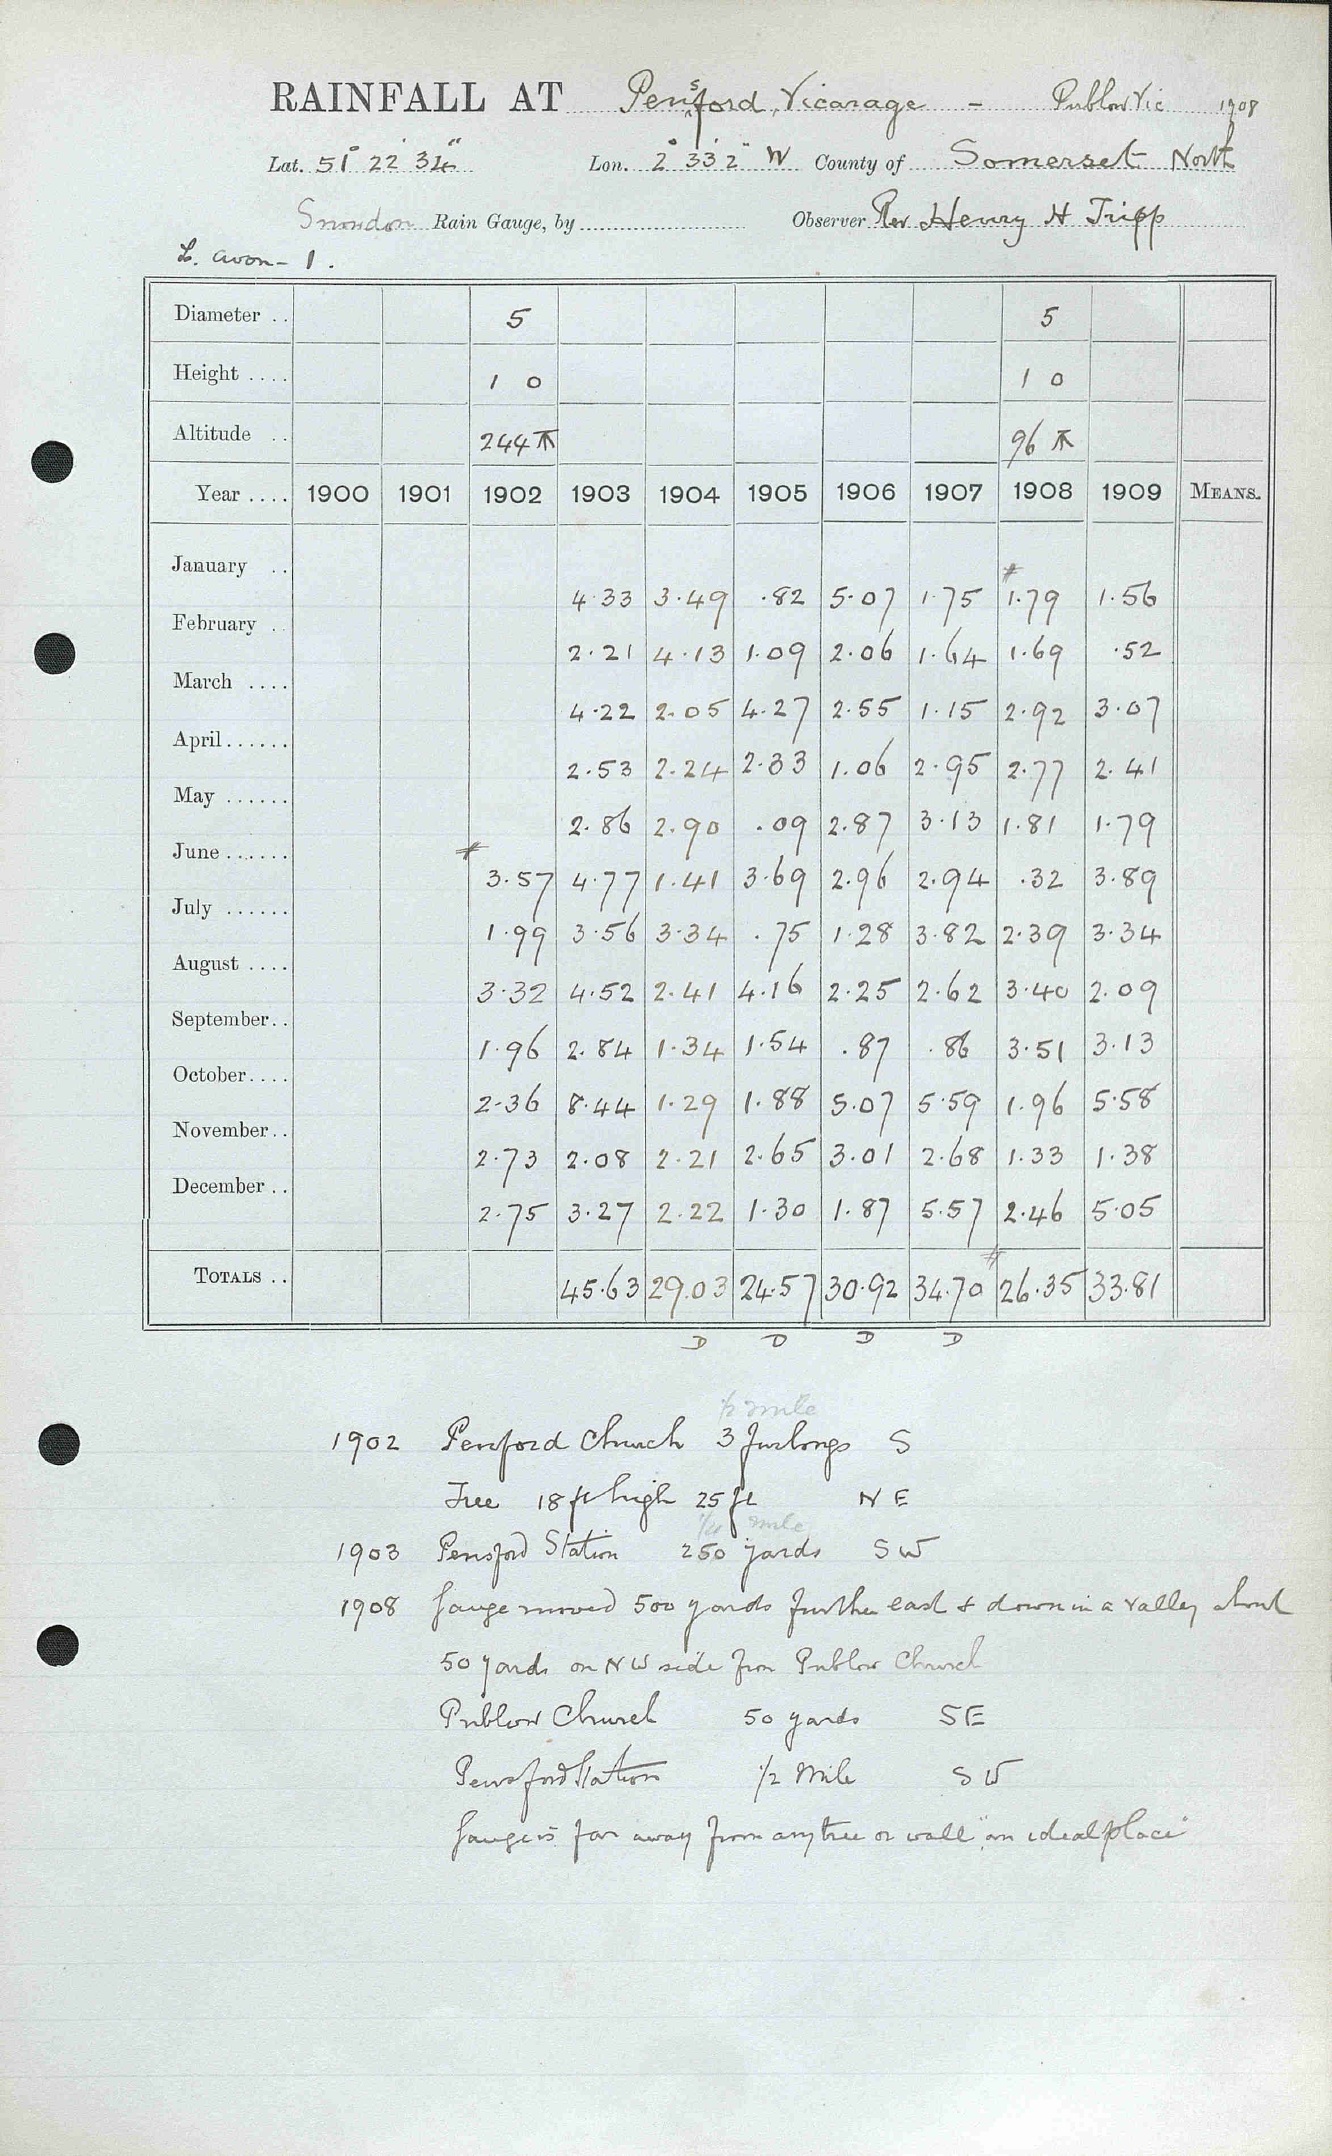 RAINFALL AT Pensford, Vicarage - Publow Vic 1908
Lat. 51° 22' 34" Lon. 2° 33' 2" W County of Somerset North
Snowdon Rain Gauge, by Observer Rev Henry H Tripp
L. Avon - 1.
Diameter .. 5 5
Height .... 1 0 1 0
Altitude .. 244 96
Year .... 1900 1901 1902 1903 1904 1905 1906 1907 1908 1909 MEANS.
January .. 4.33 3.49 .82 5.07 1.75 #1.79 1.56
February .. 2.21 4.13 1.09 2.06 1.64 1.69 .52
March .... 4.22 2.05 4.27 2.55 1.15 2.92 3.07
April...... 2.53 2.24 2.33 1.06 2.95 2.77 2.41
May ...... 2.86 2.90 .09 2.87 3.13 1.81 1.79
June ...... # 3.57 4.77 1.41 3.69 2.96 2.94 .32 3.89
July ...... 1.99 3.56 3.34 .75 1.28 3.82 2.39 3.34
August .... 3.32 4.52 2.41 4.16 2.25 2.62 3.40 2.09
September.. 1.96 2.84 1.34 1.54 .87 .86 3.51 3.13
October.... 2.36 8.44 1.29 1.88 5.07 5.59 1.96 5.58
November.. 2.73 2.08 2.21 2.65 3.01 2.68 1.33 1.38
December .. 2.75 3.27 2.22 1.30 1.87 5.57 2.46 5.05
TOTALS .. 45.63 29.03 24.57 30.92 34.70 # 26.35 33.81
D D D D
½ mile
1902 Penford Church 3 furlongs S
Tree 18 ft high 25 ft N E
¼ mile
1903 Pensford Station 250 yards S W
1908 Gauge moved 500 yards further east & down in a valley about
50 yards on NW side from Publow Church
Publow Church 50 yards SE
Pensford Station ½ Mile S W
Gauge is far away from any tree or wall "an ideal place"